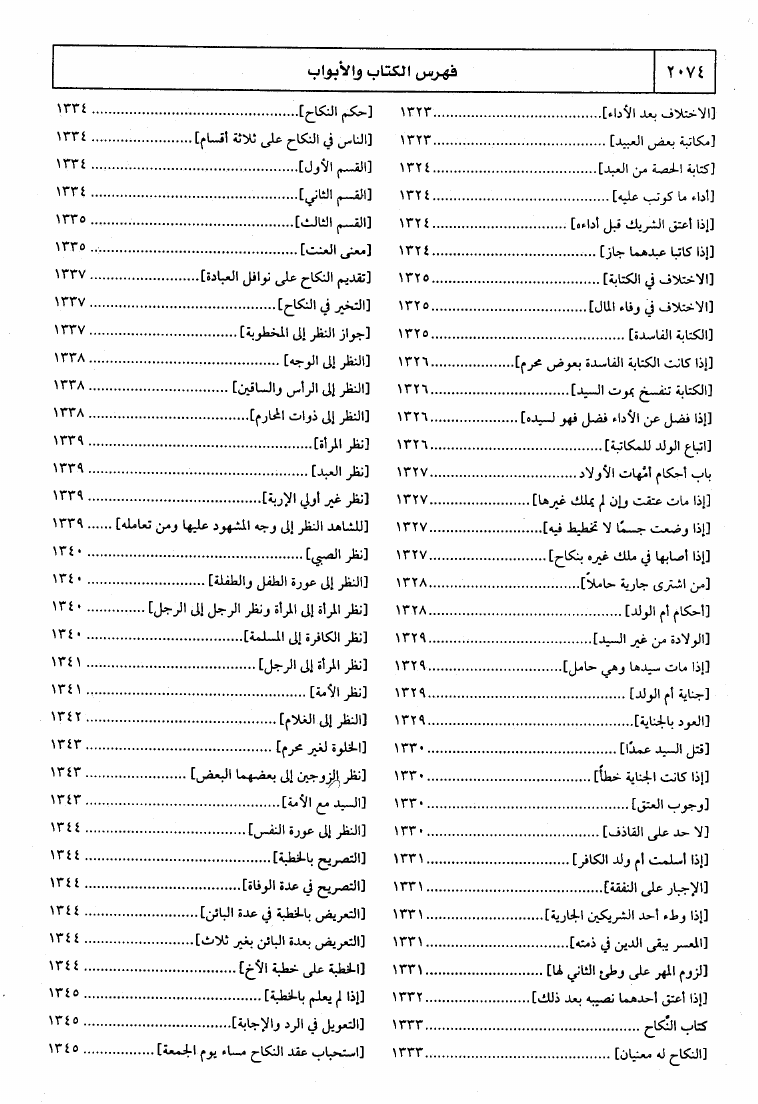 ٢٠٧٤
فهرس الكتاب والأبواب
[الاختلاف بعد الأداء]......................................١٣٢٣
[مكاتبة بعض العبيد] ......................................١٣٢٣
[كتابة الحصة من العبد]......................................١٣٢٤
[أداء ما كوتب عليه] ......................................١٣٢٤
[إذا أعتق الشريك قبل أداءه] ..............................١٣٢٤
[إذا كاتبا عبدهما جاز] ..................................١٣٢٤
[الاختلاف في الكتابة] ....................................١٣٢٥
[الاختلاف في وفاء المال]..................................١٣٢٥
[الكتابة الفاسدة] ........................................١٣٢٥
[إذا كانت الكتابة الفاسدة بعوض محرم]....................١٣٢٦
[الكتابة تنفسخ بموت السيد] ..............................١٣٢٦
[إذا فضل عن الأداء فضل فهو لسيده] ......................١٣٢٦
[اتباع الولد للمكاتبة] ..................................١٣٢٦
باب أحكام أمّهات الأولاد..................................١٣٢٧
[إذا مات عتقت وإن لم يملك غيرها] ........................١٣٢٧
[إذا وضعت جسمًا لا تخطيط فيه]............................١٣٢٧
[إذا أصابها في ملك غيره بنكاح] ..........................١٣٢٧
[من اشترى جارية حاملاً]..................................١٣٢٨
[أحكام أم الولد] ........................................١٣٢٨
[الولادة من غير السيد]..................................١٣٢٩
[إذا مات سيدها وهي حامل]................................١٣٢٩
[جناية أم الولد] ........................................١٣٢٩
[العود بالجناية]........................................١٣٢٩
[قتل السيد عمدًا] ......................................١٣٣٠
[إذا كانت الجناية خطأ] ..................................١٣٣٠
[وجوب العتق] ..........................................١٣٣٠
[لا حد على القاذف] ......................................١٣٣٠
[إذا أسلمت أم ولد الكافر] ..............................١٣٣١
[الإجبار على النفقة]....................................١٣٣١
[إذا وطء أحد الشريكين الجارية]..........................١٣٣١
[المعسر يبقى الدين في ذمته]............................١٣٣١
[لزوم المهر على وطئ الثاني لها] ........................١٣٣١
[إذا أعتق أحدهما نصيبه بعد ذلك]........................١٣٣٢
كتاب النّكاح ............................................١٣٣٣
[النكاح له معنيان] ......................................١٣٣٣
[حكم النكاح]............................................١٣٣٤
[الناس في النكاح على ثلاثة أقسام]......................١٣٣٤
[القسم الأول]............................................١٣٣٤
[القسم الثاني]..........................................١٣٣٤
[القسم الثالث]..........................................١٣٣٥
[معنى العنت]............................................١٣٣٥
[تقديم النكاح على نوافل العبادة]........................١٣٣٧
[التخير في النكاح] ......................................١٣٣٧
[جواز النظر إلى المخطوبة] ..............................١٣٣٧
[النظر إلى الوجه] ......................................١٣٣٨
[النظر إلى الرأس والساقين] ..............................١٣٣٨
[النظر إلى ذوات المحارم]................................١٣٣٨
[نظر المرأة]............................................١٣٣٩
[نظر العبد] ............................................١٣٣٩
[نظر غير أولي الإربة]....................................١٣٣٩
[للشاهد النظر إلى وجه المشهود عليها ومن تعامله] ......١٣٣٩
[نظر الصبي] ............................................١٣٤٠
[النظر إلى عورة الطفل والطفلة] ..........................١٣٤٠
[نظر المرأة إلى المرأة ونظر الرجل إلى الرجل] ............١٣٤٠
[نظر الكافرة إلى المسلمة]................................١٣٤٠
[نظر المرأة إلى الرجل] ..................................١٣٤١
[نظر الأمة] ............................................١٣٤١
[النظر إلى الغلام] ......................................١٣٤٢
[الخلوة لغير محرم] ......................................١٣٤٣
[نظر الزوجين إلى بعضهما البعض] ..........................١٣٤٣
[السيد مع الأمة]........................................١٣٤٣
[النظر إلى عورة النفس]..................................١٣٤٤
[التصريح بالخطبة] ......................................١٣٤٤
[التصريح في عدة الوفاة]................................١٣٤٤
[التعريض بالخطبة في عدة البائن] ........................١٣٤٤
[التعريض بعدة البائن بغير ثلاث]..........................١٣٤٤
[الخطبة على خطبة الأخ] ..................................١٣٤٤
[إذا لم يعلم بالخطبة] ..................................١٣٤٥
[التعويل في الرد والإجابة]..............................١٣٤٥
[استحباب عقد النكاح مساء يوم الجمعة] ..................١٣٤٥